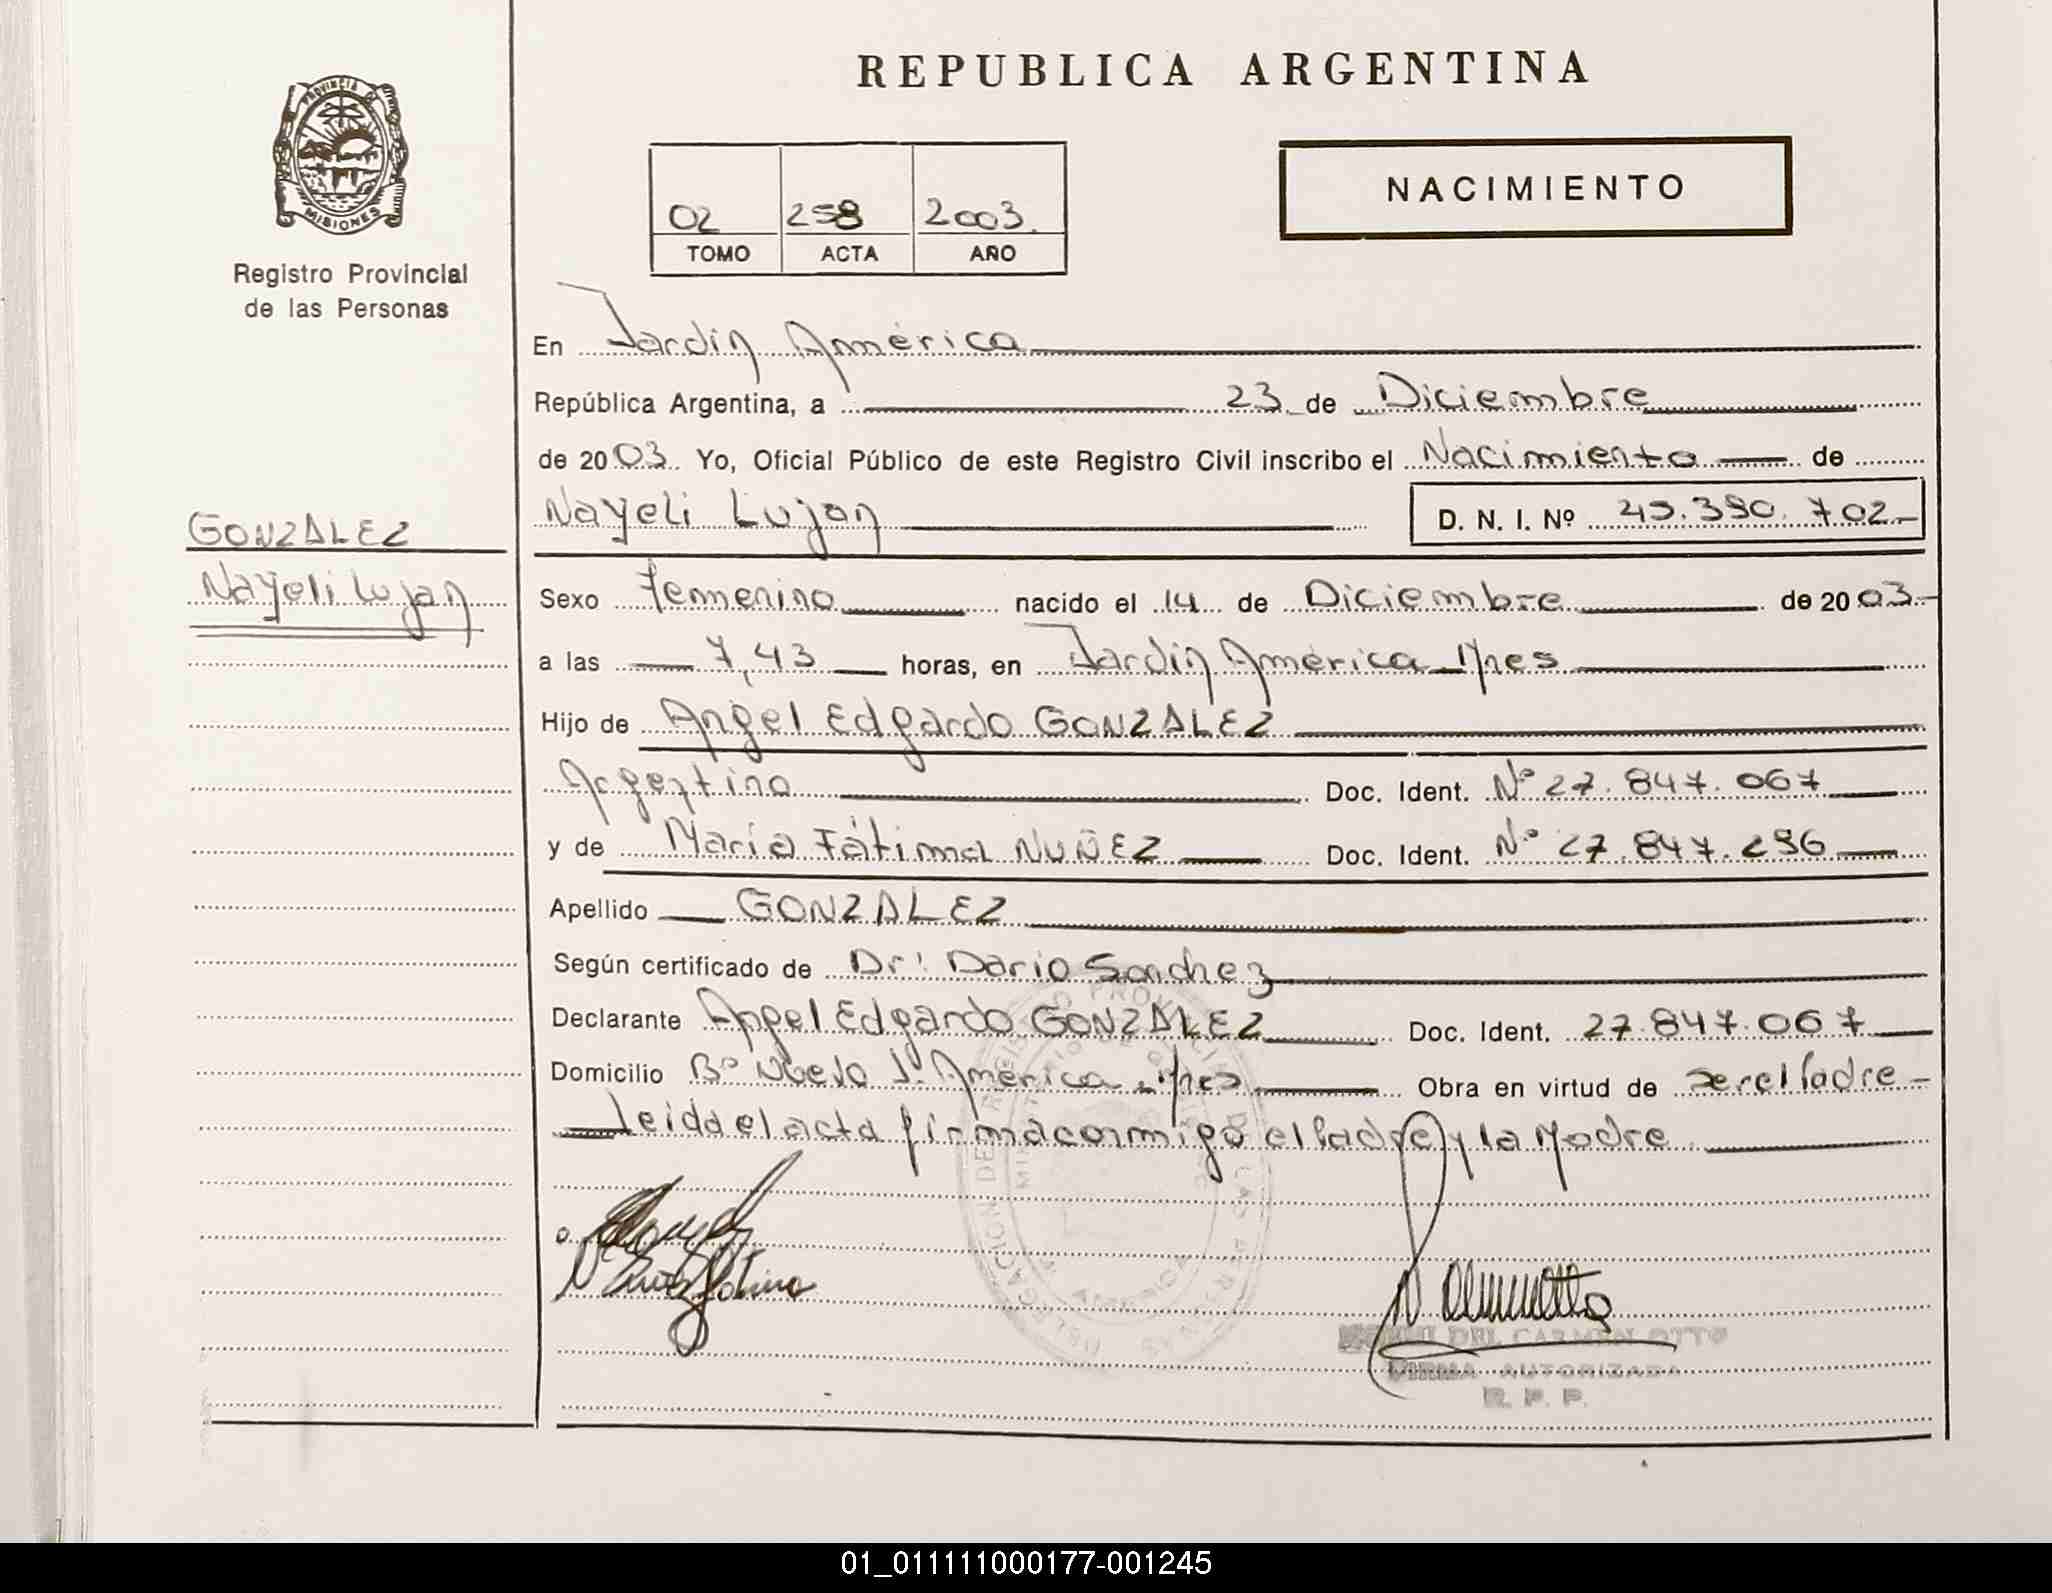 REPUBLICA ARGENTINA
PROVINCIA DE
MISIONES
Registro Provincial
de las Personas
02 258 2003.
TOMO ACTA AÑO
NACIMIENTO
En Jardín América
República Argentina, a 23 de Diciembre
de 2003. Yo, Oficial Público de este Registro Civil inscribo el Nacimiento de
GONZALEZ
Nayeli Lujan
Nayeli Lujan D. N. I. Nº 45.390.702.-
Sexo Femenino nacido el 14 de Diciembre de 2003-
a las 7,43 horas, en Jardín América Mnes
Hijo de Angel Edgardo GONZALEZ
Argentino Doc. Ident. Nº 27.847.067
y de María Fátima NUÑEZ Doc. Ident. Nº 27.847.296
Apellido GONZALEZ
Según certificado de Dr. Dario Sanchez
Declarante Angel Edgardo GONZALEZ Doc. Ident. 27.847.067
Domicilio Bº Nuevo J. América Mnes Obra en virtud de ser el Padre -
Leida el acta firma conmigo el Padre y la Madre
DEL CARMEN OTTO
FIRMA AUTORIZADA
R. P. P.
01_011111000177-001245